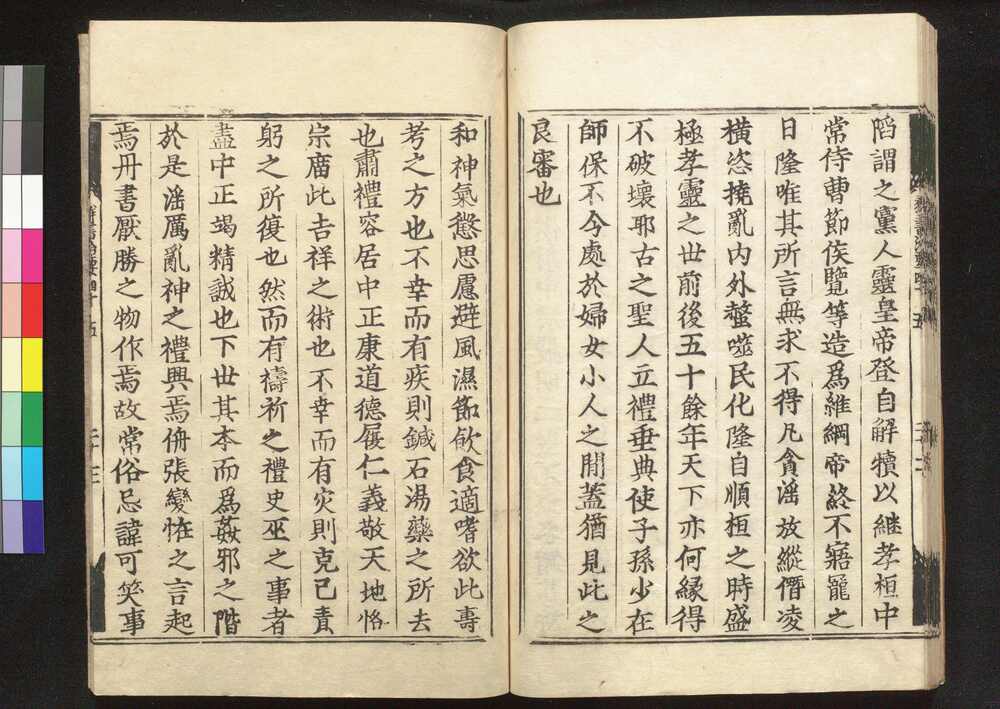 謟謂之黨人靈皇帝登自解犢以継孝桓中
常侍曹節侯覽等造爲維綱帝終不寤寵之
日隆唯其所言無求不得凡貪滛放縱僭凌
橫恣撓亂内外螫噬民化隆自順桓之時盛
極孝靈之世前後五十餘年天下亦何縁得
不破壞耶古之聖人立禮垂典使子孫少在
師保不令處於婦女小人之閒蓋猶見此之
良審也
和神氣懲思慮避風濕節飲食適嗜欲此壽
考之方也不幸而有疾則鍼石湯藥之所去
也肅禮容居中正康道德履仁義敬天地恪
宗廟此吉祥之術也不幸而有灾則克己責
躬之所復也然而有禱祈之禮史巫之事者
盡中正竭精誠也下世其本而爲姦邪之階
於是滛厲亂神之禮興焉侜張變恠之言起
焉丹書厭勝之物作焉故常俗忌諱可笑事